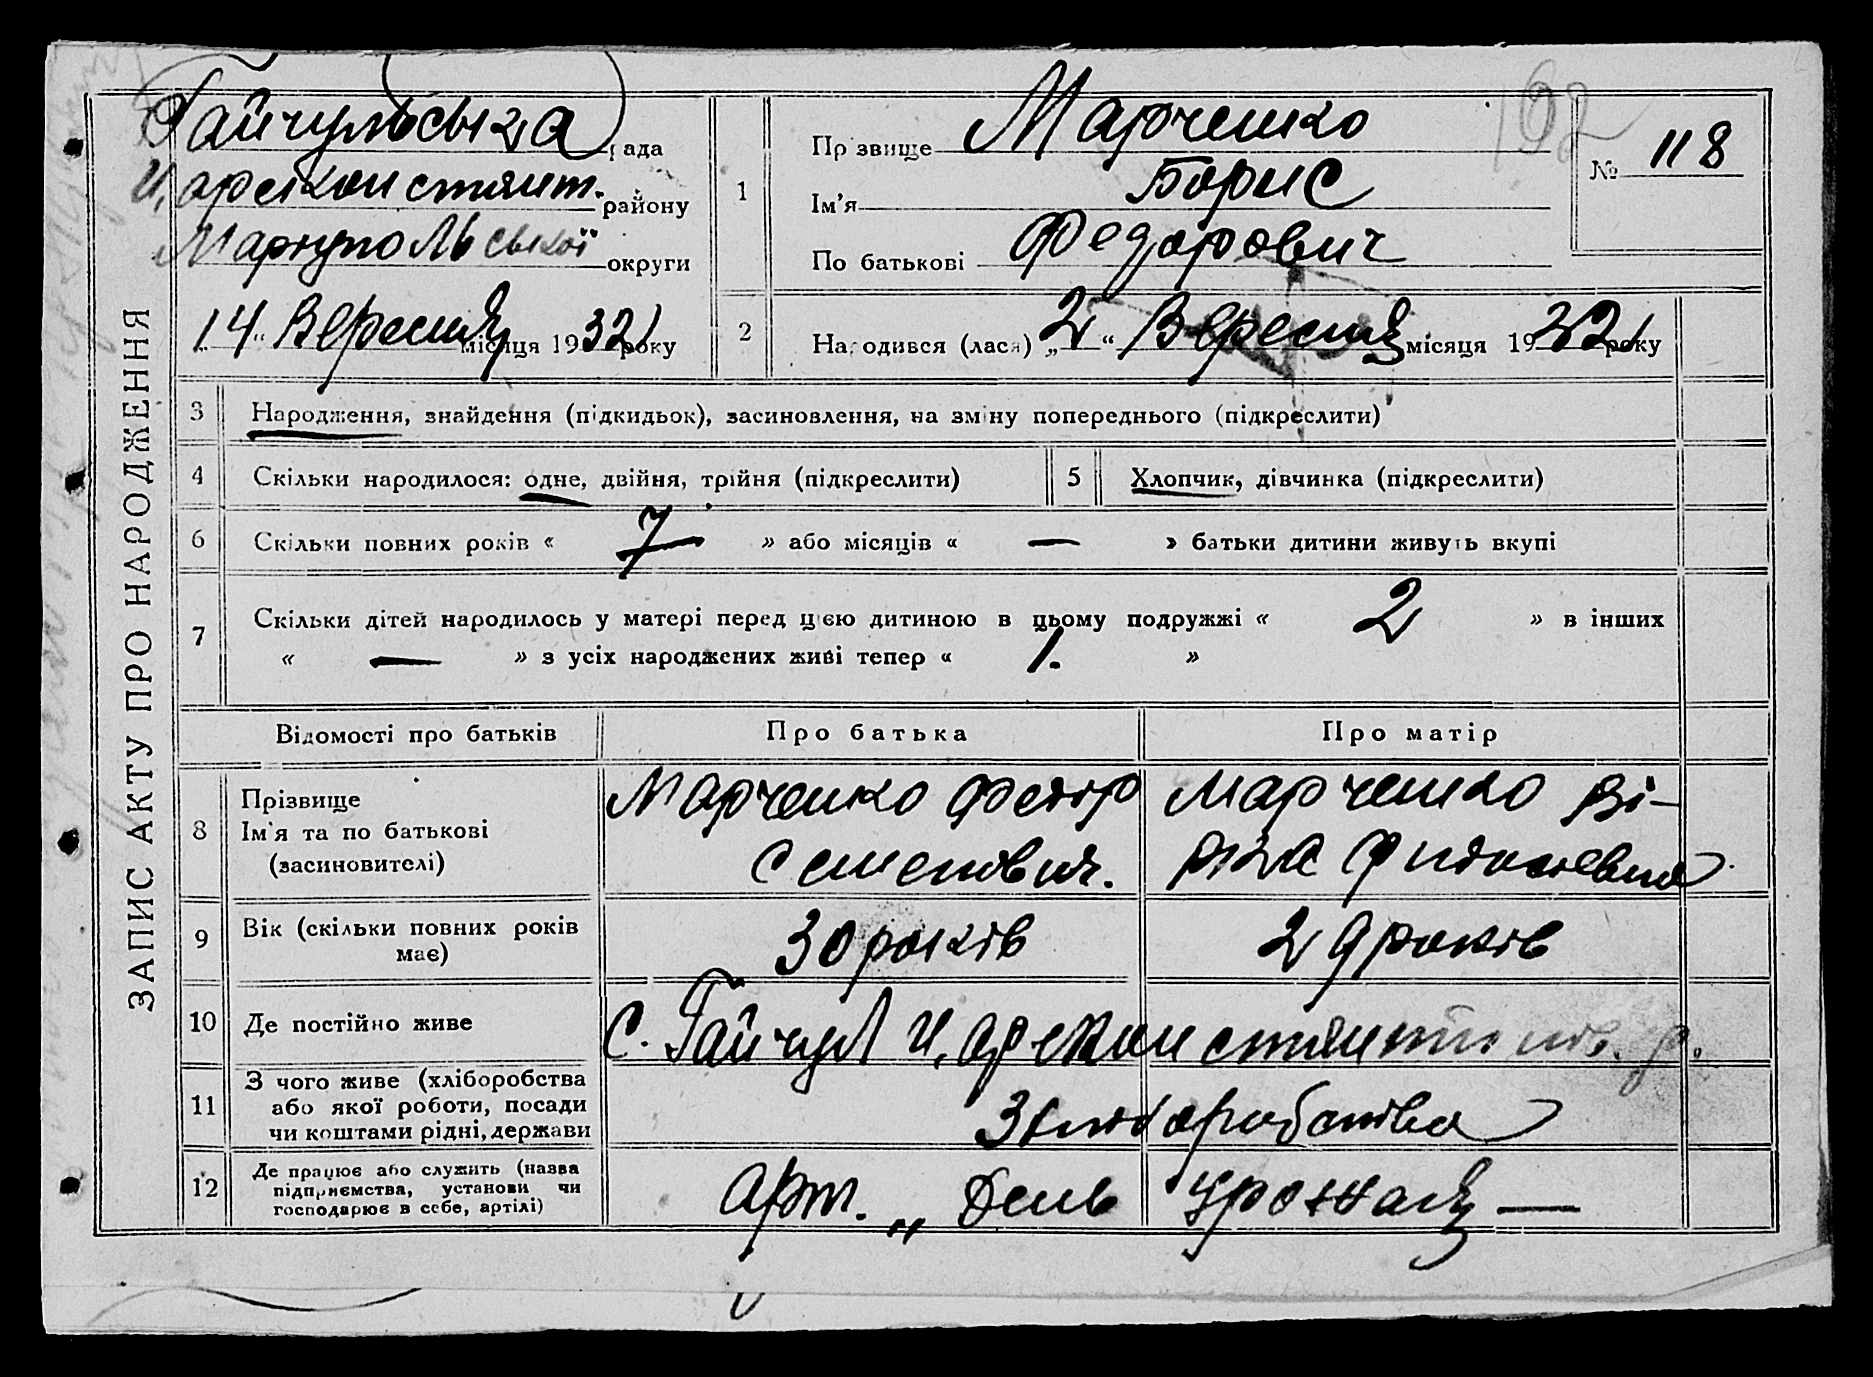 ЗАПИС АКТУ ПРО НАРОДЖЕННЯ
Гайчульська рада
Царекон стянт. району
Маріупольської округи
„14“ Вересня місяця 1932 року
1
Прізвище Марченко
Ім'я Борис
По батькові Федорович
192
№ 118
2
Народився (лася) „2“ Вересня місяця 1932 року
3 Народження, знайдення (підкидьок), засиновлення, на зміну попереднього (підкреслити)
4 Скільки народилося: одне, двійня, трійня (підкреслити)
5 Хлопчик, дівчинка (підкреслити)
6 Скільки повних років « 7 » або місяців « — » батьки дитини живуть вкупі
7 Скільки дітей народилось у матері перед цією дитиною в цьому подружжі « 2 » в інших
« — » з усіх народжених живі тепер « 1. »
Відомості про батьків Про батька Про матір
8 Прізвище
Ім'я та по батькові
(засиновителі)
Марченко Федір
Семенович.
Марченко
9 Вік (скільки повних років
має)
30 років
29 років
10 Де постійно живе
с. Гайчул Царекон
11 З чого живе (хліборобства
або якої роботи, посади
чи коштами рідні, держави
12 Де працює або служить (назва
підприємства, установи чи
господарює в себе, артілі)
Арт. „День Урожая —